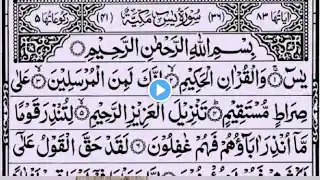 اٰیاتها ۸۳ (۳۶) سُوْرَةُ يٰسٓ مَكِّيَّةٌ (۴۱) رکوعاتها ۵
بِسْمِ اللهِ الرَّحْمٰنِ الرَّحِيْمِ
يٰسٓ ۝ وَالْقُرْاٰنِ الْحَكِيْمِ ۝ اِنَّكَ لَمِنَ الْمُرْسَلِيْنَ ۝ عَلٰى
صِرَاطٍ مُّسْتَقِيْمٍ ۝ تَنْزِيْلَ الْعَزِيْزِ الرَّحِيْمِ ۝ لِتُنْذِرَ قَوْمًا
مَّاۤ اُنْذِرَ اٰبَآؤُهُمْ فَهُمْ غٰفِلُوْنَ ۝ لَقَدْ حَقَّ الْقَوْلُ عَلٰۤى